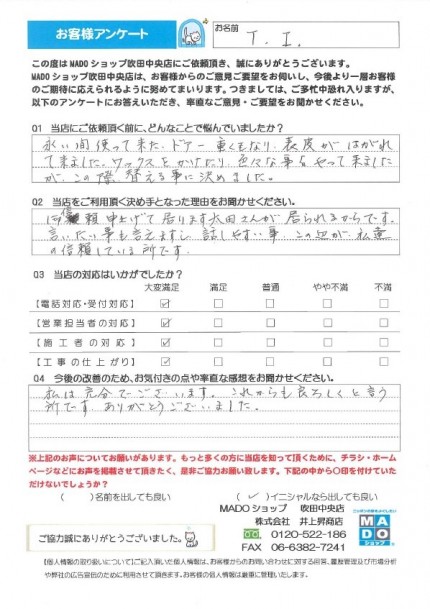 お客様アンケート
お名前 T. I.
この度は MADO ショップ吹田中央店にご依頼頂き、誠にありがとうございます。
MADO ショップ吹田中央店は、お客様からのご意見ご要望をお伺いし、今後より一層お客様
のご期待に応えられるように努めてまいります。つきましては、ご多忙中恐れ入りますが、
以下のアンケートにお答えいただき、率直なご意見・ご要望をお聞かせください。
Q1 当店にご依頼頂く前に、どんなことで悩んでいましたか？
永い間使って来た、ドアー重くもなり、表皮がはがれ
て来ました。ワックスをかけたり、色々な事をやって来ました
が、この際、替える事に決めました。
Q2 当店をご利用頂く決め手となった理由をお聞かせください。
信頼申上げて居ります太田さんが居られるからです。
言いたい事も言えますし、話しやすい事、この点が、私達
の信頼している所です。
Q3 当店の対応はいかがでしたか？
大変満足 満足 普通 やや不満 不満
【電話対応・受付対応】 ☑ □ □ □ □
【営業担当者の対応】 ☑ □ □ □ □
【施工者の対応】 ☑ □ □ □ □
【工事の仕上がり】 ☑ □ □ □ □
Q4 今後の改善のため、お気付きの点や率直な感想をお聞かせください。
私は充分でございます。これからも良ろしくと言う
所です。ありがとうございました。
※上記のお声についてお願いがあります。もっと多くの方に当店を知って頂くために、チラシ・ホーム
ページなどにお声を掲載させて頂きたく、是非ご協力お願い致します。下記の中から〇印を付けていた
だけないでしょうか？
（ ）名前を出しても良い （✓）イニシャルなら出しても良い
MADO ショップ 吹田中央店
株式会社 井上昇商店
0120-522-186
FAX 06-6382-7241
MADO
ショップ
ご協力誠にありがとうございました。
【個人情報の取り扱いについて】ご記入頂いた個人情報は、お客様からのお問い合わせに対する回答、商談管理及び市場分析
や弊社の広告宣伝のために利用させて頂きます。お客様の個人情報は厳重に管理いたします。